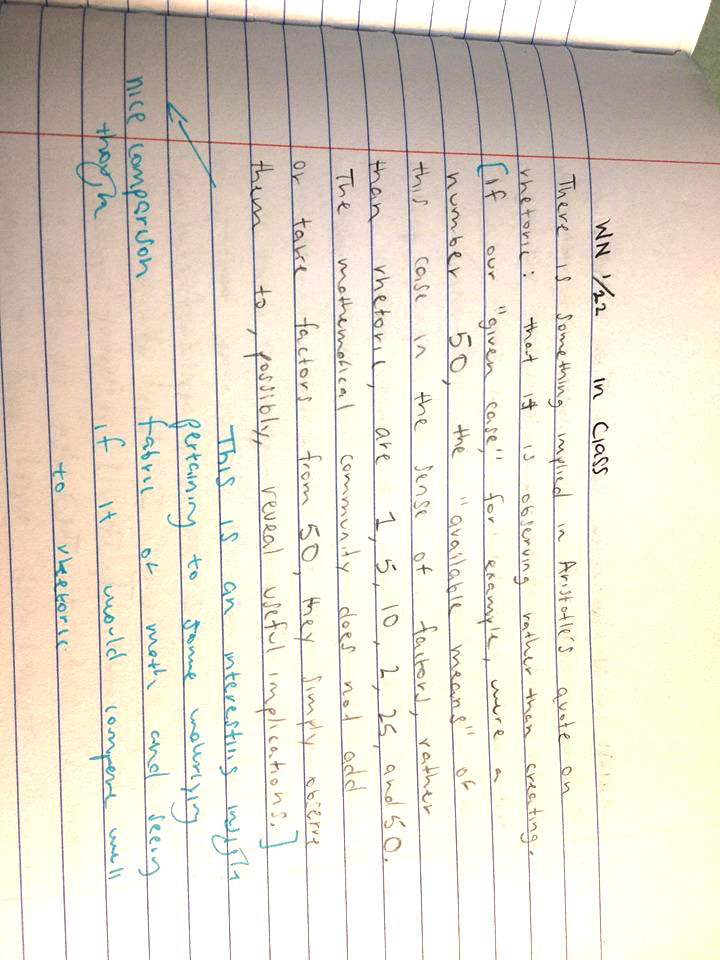 WN 1/22 in Class
There is something implied in Aristotle's quote on
rhetoric: that it is observing rather than creating.
[if our "given case," for example, were a
number 50, the "available means" of
this case in the sense of factors, rather
than rhetoric, are 1, 5, 10, 2, 25, and 50.
The mathematical community does not add
or take factors from 50, they simply observe
them to, possibly, reveal useful implications.]
This is an interesting insight
pertaining to some underlying
fabric of math and seeing
if it would compare well
to rhetoric
nice comparison
though